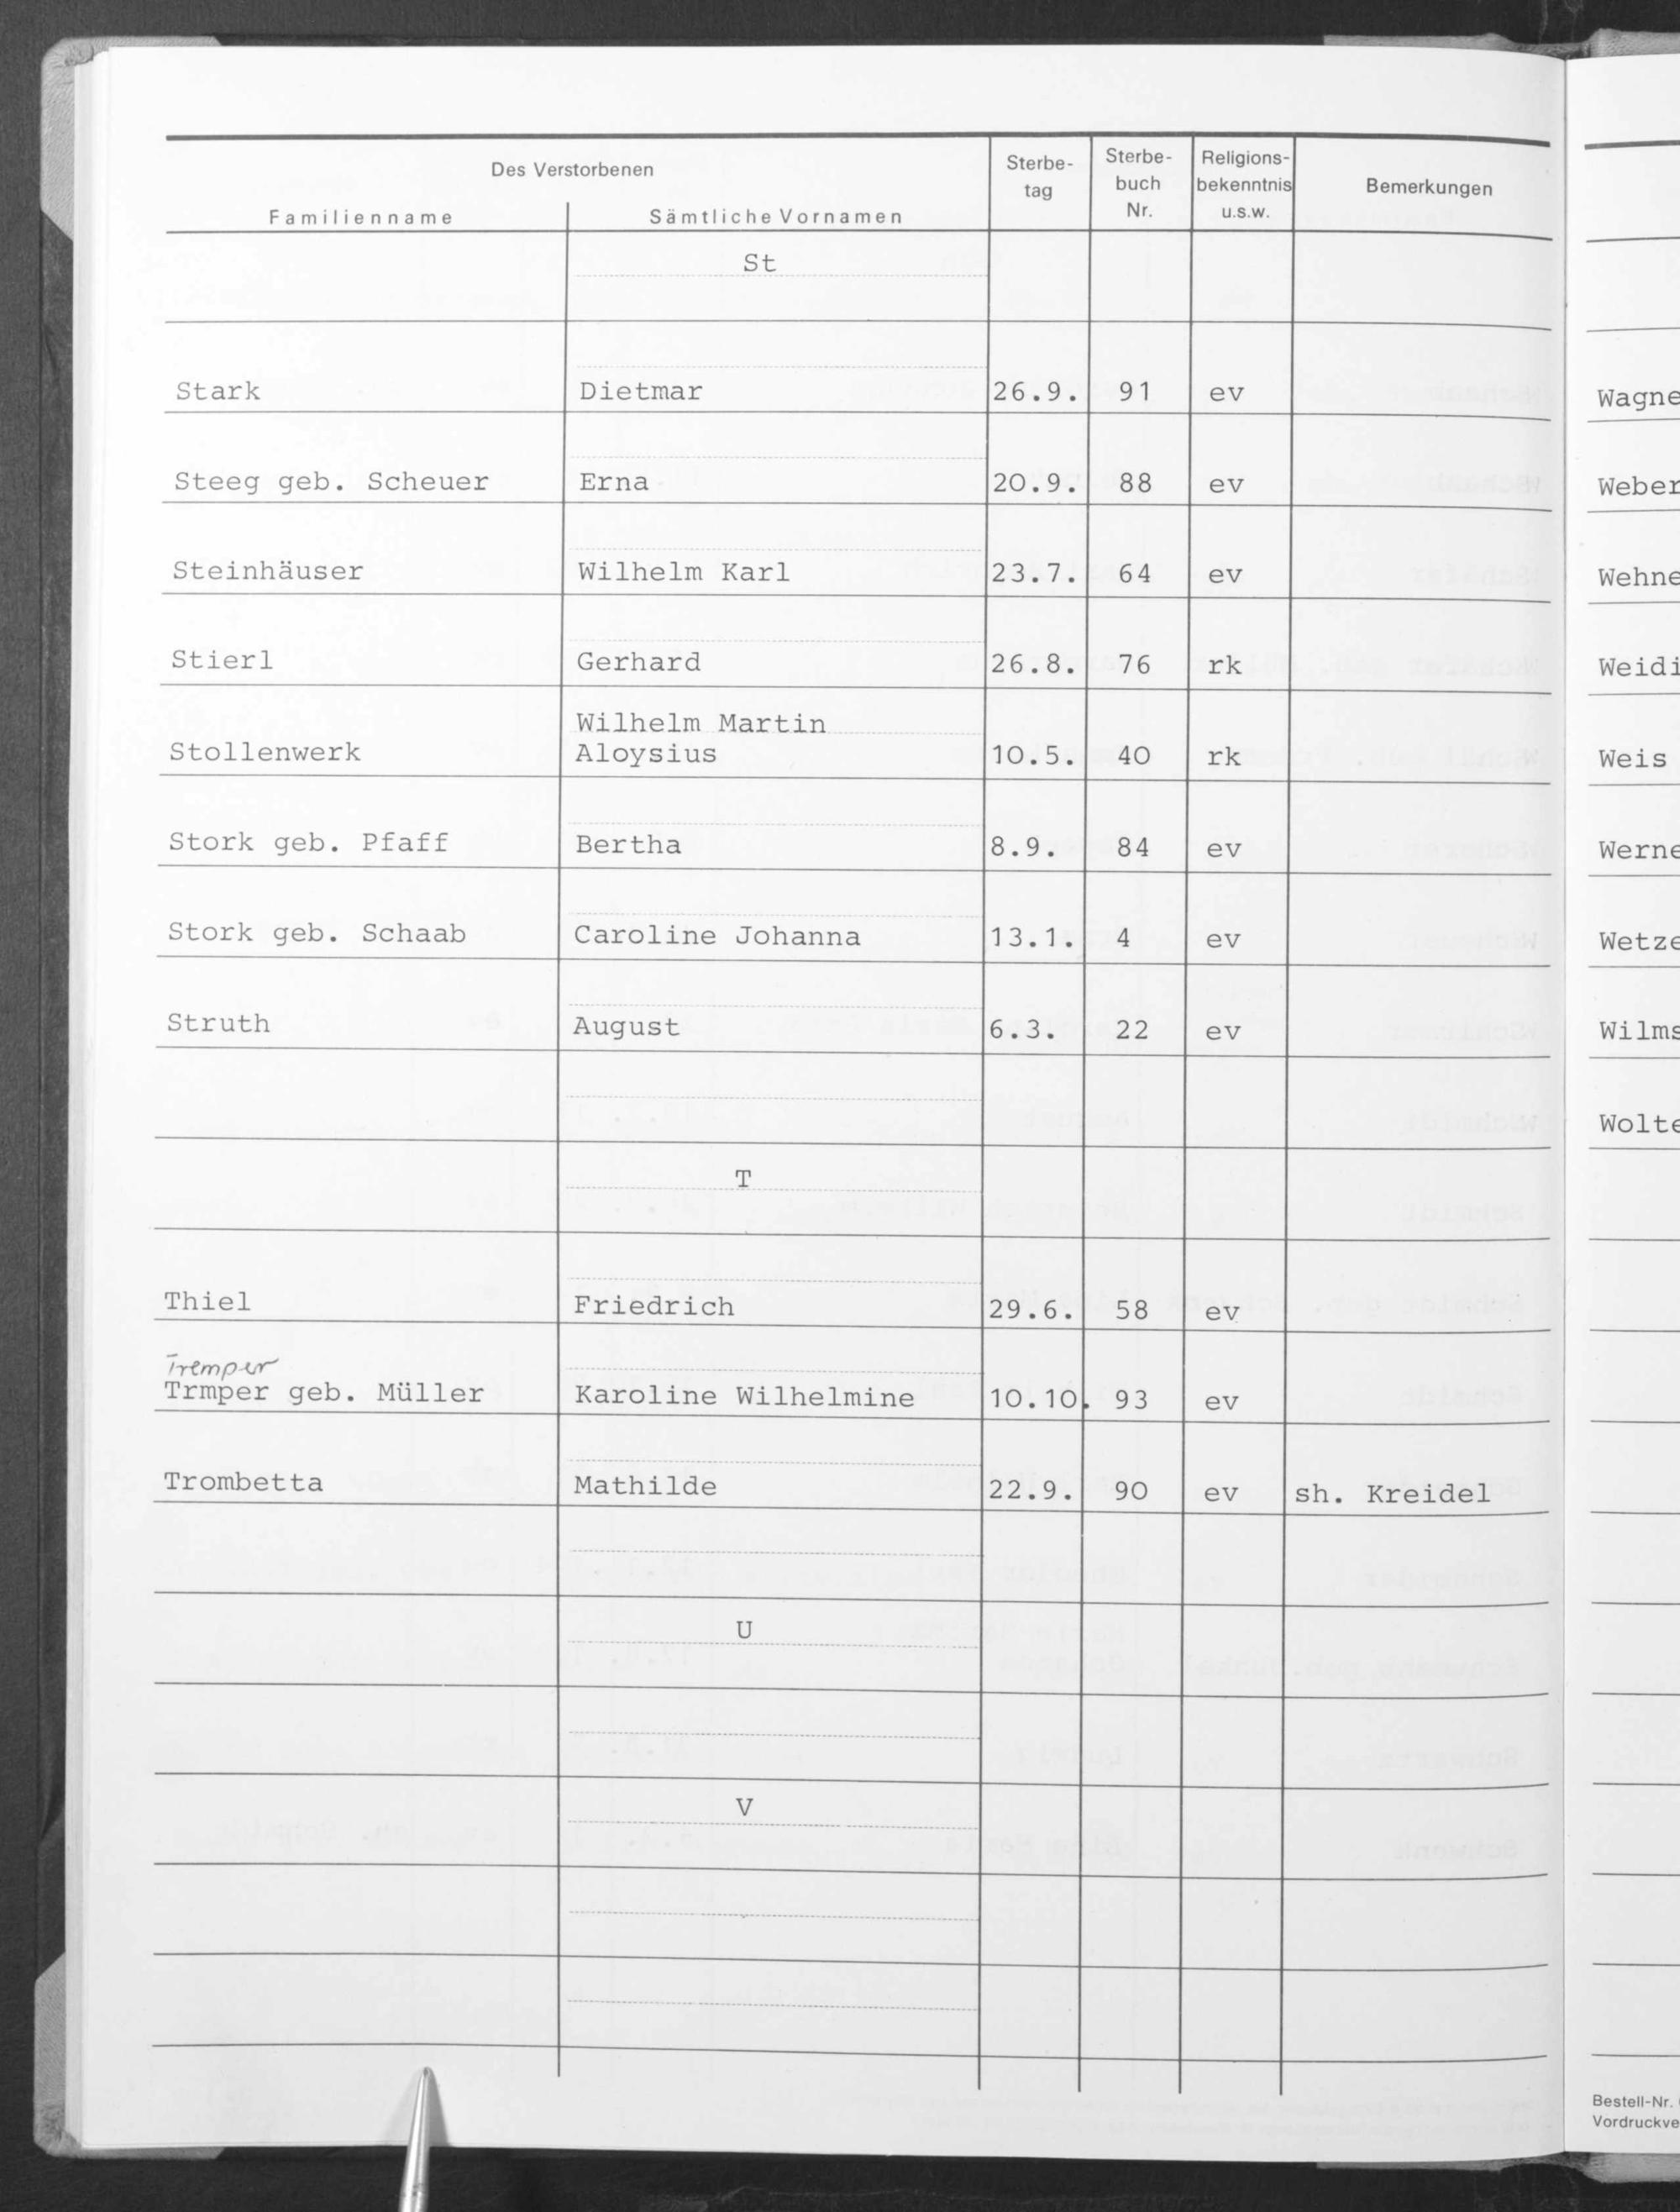 Des Verstorbenen
Familienname Sämtliche Vornamen
Sterbe-
tag
Sterbe-
buch
Nr.
Religions-
bekenntnis
u.s.w.
Bemerkungen
St
Stark Dietmar 26.9. 91 ev
Steeg geb. Scheuer Erna 20.9. 88 ev
Steinhäuser Wilhelm Karl 23.7. 64 ev
Stierl Gerhard 26.8. 76 rk
Wilhelm Martin
Stollenwerk Aloysius 10.5. 40 rk
Stork geb. Pfaff Bertha 8.9. 84 ev
Stork geb. Schaab Caroline Johanna 13.1. 4 ev
Struth August 6.3. 22 ev
T
Thiel Friedrich 29.6. 58 ev
Tremper
Trmper geb. Müller Karoline Wilhelmine 10.10. 93 ev
Trombetta Mathilde 22.9. 90 ev sh. Kreidel
U
V
Wagne
Weber
Wehne
Weidi
Weis
Werne
Wetze
Wilms
Wolte
Bestell-Nr.
Vordruckve